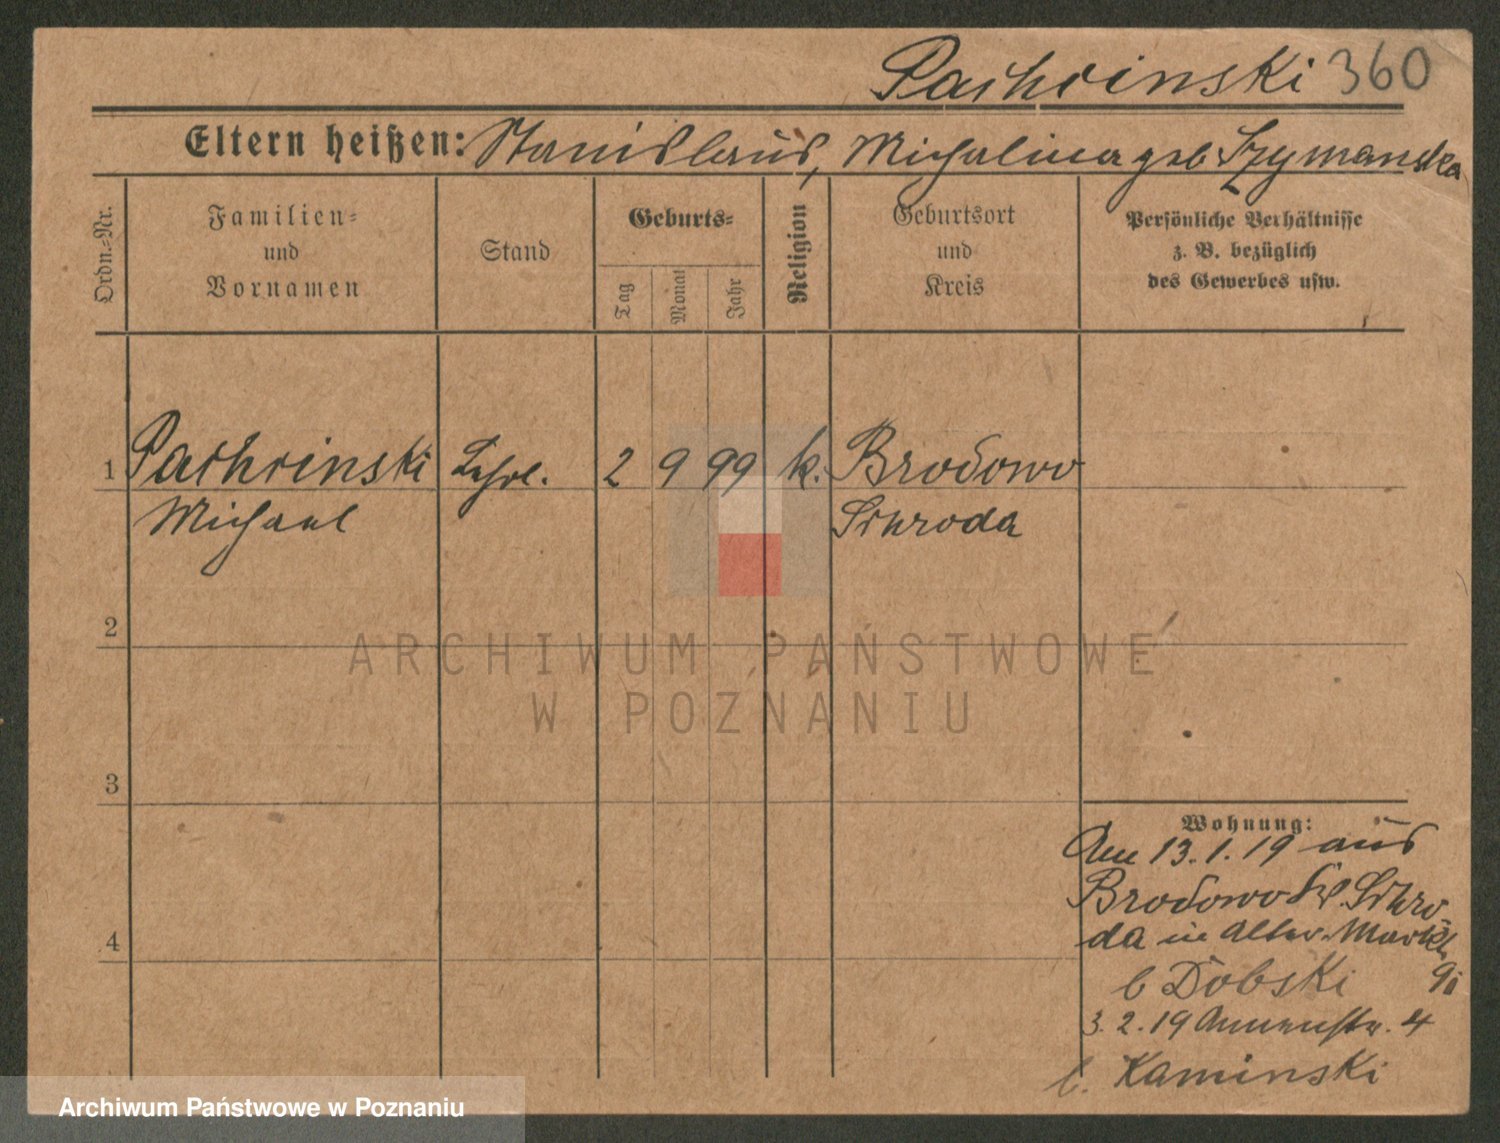 Pachrinski 360
Eltern heißen: Stanislaus, Michalina geb Szymanska
Ordn.-Nr.
Familien-
und
Vornamen
Stand
Geburts-
Tag
Monat
Jahr
Religion
Geburtsort
und
Kreis
Persönliche Verhältnisse
z. B. bezüglich
des Gewerbes usw.
1 Pachrinski Lehrl. 2 9 99 k. Brodowo
Michael Schroda
2
ARCHIWUM PAŃSTWOWE
W POZNANIU
3
Wohnung:
Am 13.1.19 aus
Brodowo Schro-
da in Alter Markt
b Dobski
3.2.19 Annenstr. 4
b. Kaminski
4
Archiwum Państwowe w Poznaniu